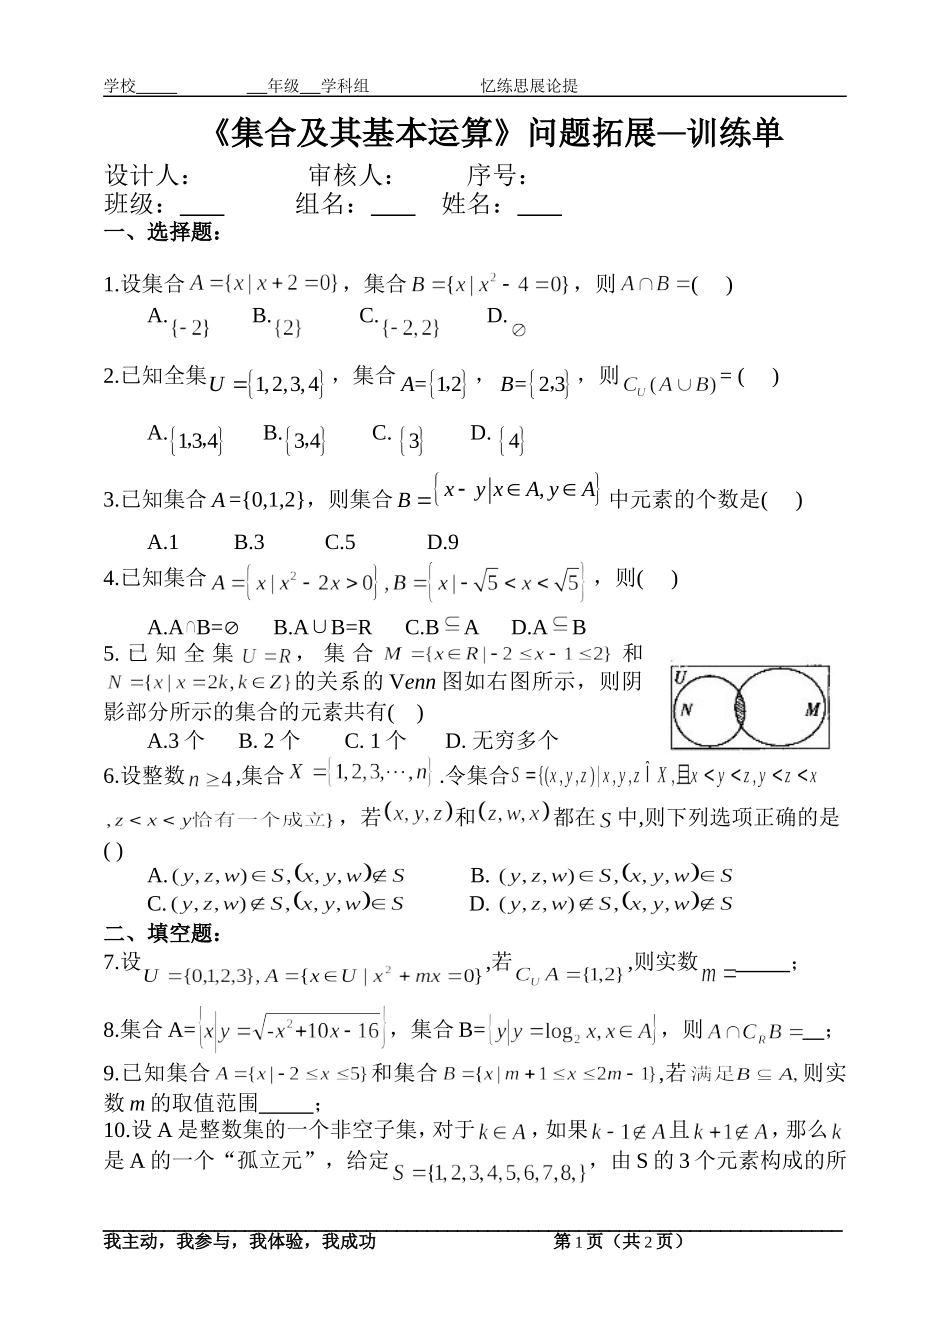 学校_____ __年级__学科组 忆练思展论提
《集合及其基本运算》问题拓展—训练单
设计人： 审核人： 序号：
班级：____ 组名：____ 姓名：____
一、选择题：
1.设集合 A={x|x+2=0}，集合 B={x|x²-4=0}，则 A∩B=( )
A.{-2} B.{2} C.{-2,2} D.∅
2.已知全集U={1,2,3,4}，集合A={1,2}，B={2,3}，则C_U(A∪B)=( )
A.{1,3,4} B.{3,4} C.{3} D.{4}
3.已知集合 A={0,1,2}，则集合 B={x-y|x∈A,y∈A} 中元素的个数是( )
A.1 B.3 C.5 D.9
4.已知集合 A={x|x²-2x>0},B={x|-√5<x<√5}，则( )
A.A∩B=∅ B.A∪B=R C.B⊆A D.A⊆B
5.已知全集U=R，集合 M={x∈R|-2≤x-1≤2}和
N={x|x=2k,k∈Z}的关系的 Venn 图如右图所示，则阴
影部分所示的集合的元素共有( )
U
N M
A.3 个 B. 2 个 C. 1 个 D. 无穷多个
6.设整数n≥4,集合 X={1,2,3,⋯,n}.令集合S={(x,y,z)|x,y,zÎX,且x<y<z,y<z<x
,z<x<y恰有一个成立}，若(x,y,z)和(z,w,x)都在S中,则下列选项正确的是
( )
A.(y,z,w)∈S,(x,y,w)∉S B.(y,z,w)∈S,(x,y,w)∈S
C.(y,z,w)∉S,(x,y,w)∈S D.(y,z,w)∉S,(x,y,w)∉S
二、填空题：
7.设U={0,1,2,3},A={x∈U|x²+mx=0},若C_U A={1,2},则实数m=_____；
8.集合 A={x|y=√(-x²+10x-16)}，集合 B={y|y=log₂x,x∈A}，则A∩C_R B=__；
9.已知集合 A={x|-2≤x≤5}和集合 B={x|m+1≤x≤2m-1},若满足B⊆A,则实
数 m 的取值范围_____；
10.设 A 是整数集的一个非空子集，对于k∈A，如果k-1∉A且k+1∉A，那么k
是 A 的一个“孤立元”，给定S={1,2,3,4,5,6,7,8,}，由 S 的 3 个元素构成的所
我主动，我参与，我体验，我成功 第 1 页（共 2 页）